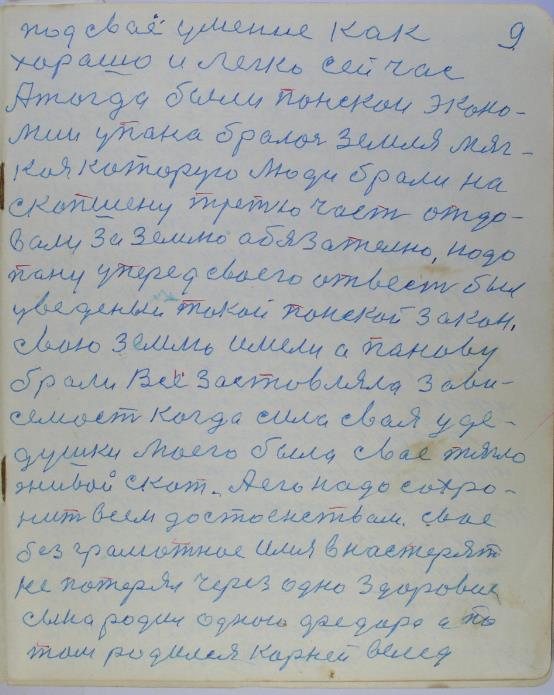 под сваё умение как 9
хорашо и легко сейчас
Атогда были понской эконо-
мии упана бралоя земля мяг-
кая которую люди брали на
скопшену третю част отдо-
вали За землю обязателно, нодо
пану уперед своего отвест был
уведеный такой понской закон.
свою землю имели а панову
брали Всё Застовляла Зави-
семост когда сила свая уде-
душки моего была свае тягло
живой скот. Аего надо сохро-
нит всем достоенствам. свае
без грамотное имя
не потеряв через одно здоровия
сына родил одного федора а по
том родился Карней велед